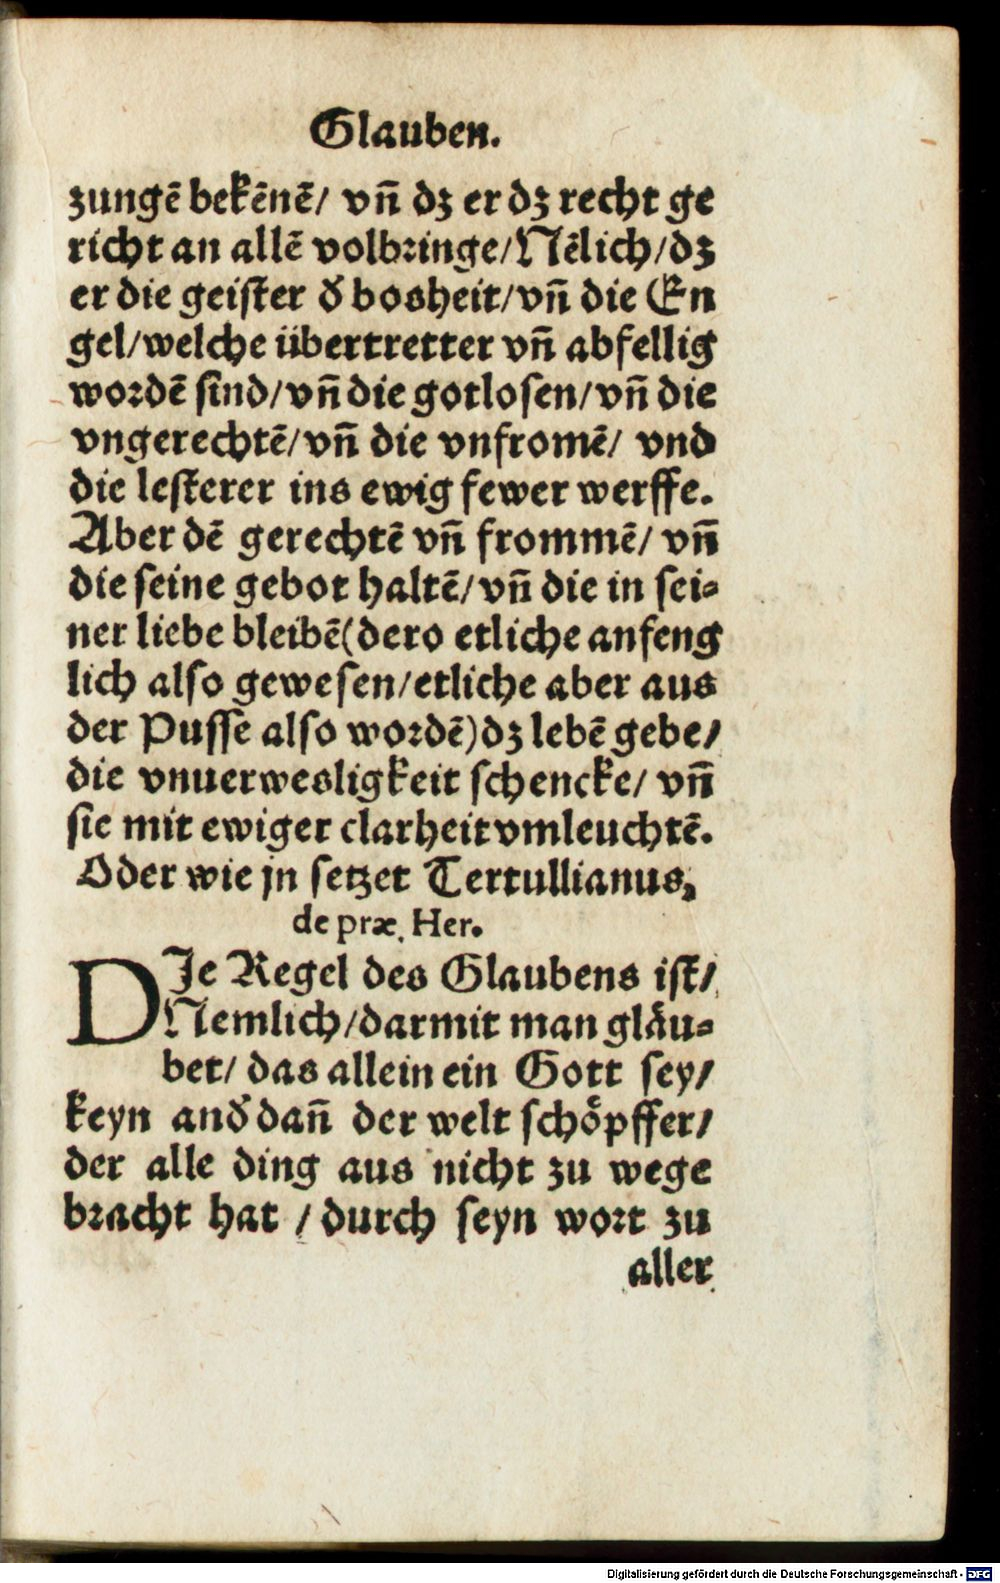 Glauben.
zungē bekēnē/ vn̄ dz er dz recht ge
richt an allē volbringe/Nēlich/dz
er die geister d̕ bosheit/vn̄ die En
gel/welche übertretter vn̄ abfellig
wordē sind/vn̄ die gotlosen/vn̄ die
vngerechtē/vn̄ die vnfromē/ vnd
die lesterer ins ewig fewer werffe.
Aber dē gerechtē vn̄ frommē/ vn̄
die seine gebot haltē/vn̄ die in sei⸗
ner liebe bleibē(dero etliche anfeng
lich also gewesen/etliche aber aus
der Pusse also wordē)dz lebē gebe/
die vnuerwesligkeit schencke/ vn̄
sie mit ewiger clarheit vmleuchtē.
Oder wie jn setzet Tertullianus,
de præ. Her.
DJe Regel des Glaubens ist/
Nemlich/darmit man gläu⸗
bet/ das allein ein Gott sey/
keyn and̕ dan̄ der welt schöpffer/
der alle ding aus nicht zu wege
bracht hat / durch seyn wort zu
aller
Digitalisierung gefördert durch die Deutsche Forschungsgemeinschaft - DFG